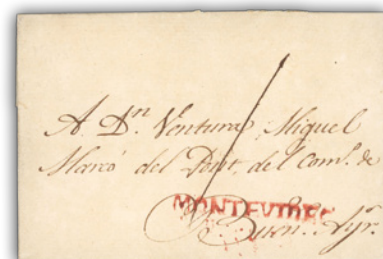 A Dn. Ventura Miguel
Marcó del Pont, del Comº. de
MONTEVIDEO
Buens. Ayrs.